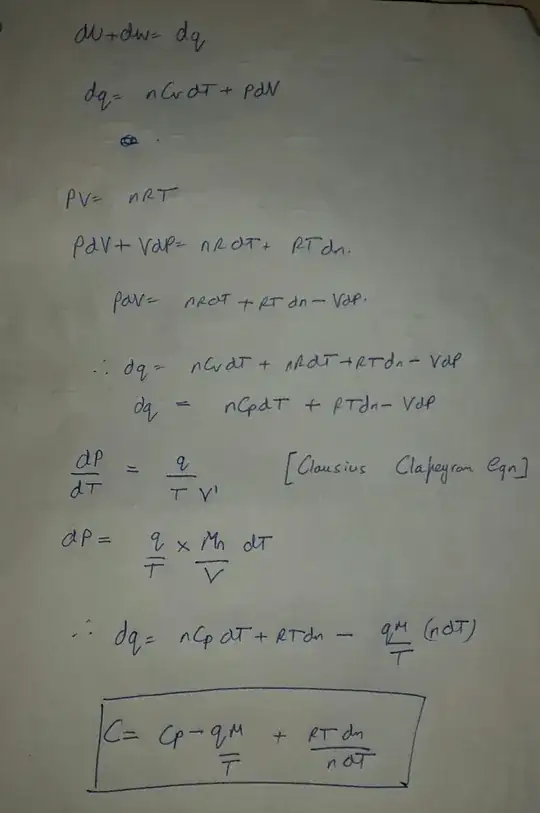 dU + dw = dq
dq = nCvdT + PdV
PV = nRT
PdV + VdP = nRdT + RTdn.
PdV = nRdT + RTdn - VdP.
∴ dq = nCvdT + nRdT + RTdn - VdP
dq = nCpdT + RTdn - VdP
dP/dT = q/TV' [Clausius Clapeyron Eqn]
dP = q/T × Mn/V dT
∴ dq = nCpdT + RTdn - qM/T (ndT)
C = Cp - qM/T + RTdn/ndT